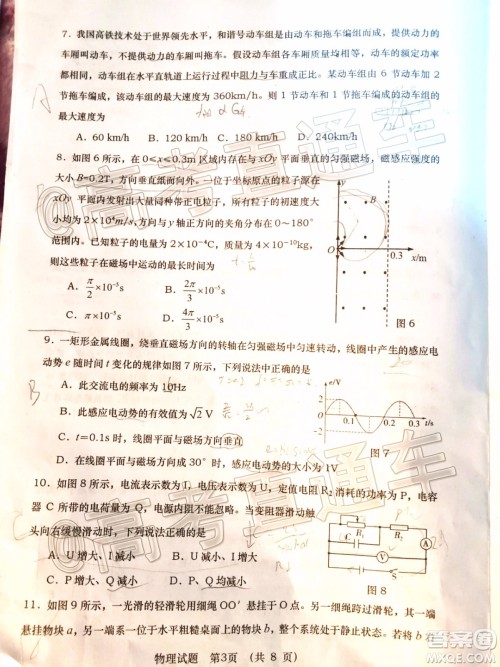 7. 我国高铁技术处于世界领先水平，和谐号动车组是由动车和拖车编组而成，提供动力的
车厢叫动车，不提供动力的车厢叫拖车。假设动车组各车厢质量均相等，动车的额定功率
都相同，动车组在水平直轨道上运行过程中阻力与车重成正比。某动车组由 6 节动车加 2
节拖车编成，该动车组的最大速度为 360km/h。则 1 节动车和 1 节拖车编成的动车组的最大
速度为
A. 60 km/h B. 120 km/h C. 180 km/h D. 240km/h
8. 如图 6 所示，在 0≤x≤0.3m 区域内存在与 xOy 平面垂直的匀强磁场，磁感应强度的
大小 B=0.2T，方向垂直纸面向外。一位于坐标原点的粒子源在
xOy 平面内发射出大量同种带正电粒子，所有粒子的初速度大
小均为 2×10⁴m/s，方向与 y 轴正方向的夹角分布在 0～180°
范围内。已知粒子的电量为 2×10⁻⁴C，质量为 4×10⁻¹⁰kg，
则这些粒子在磁场中运动的最长时间为
A. π/2×10⁻⁵s B. 2π/3×10⁻⁵s
C. π×10⁻⁵s D. 4π/3×10⁻⁵s
y
B
O
0.3
x/m
图 6
9. 一矩形金属线圈，绕垂直磁场方向的转轴在匀强磁场中匀速转动，线圈中产生的感应电
动势 e 随时间 t 变化的规律如图 7 所示，下列说法中正确的是
A. 此交流电的频率为 10Hz
B. 此感应电动势的有效值为 √2 V
C. t=0.1s 时，线圈平面与磁场方向垂直
D. 在线圈平面与磁场方向成 30° 时，感应电动势的大小为 1V
e/V
0
0.1
0.2
t/s
图 7
10. 如图 8 所示，电流表示数为 I，电压表示数为 U，定值电阻 R₂ 消耗的功率为 P，电容
器 C 所带的电荷量为 Q，电源内阻不能忽略。当变阻器滑动触
头向右缓慢滑动时，下列说法正确的是
A. U 增大、I 减小 B. U 减小、I 增大
C. P 增大、Q 减小 D. P 减小、Q 增大
R₁
R₂
C
A
V
S
图 8
11. 如图 9 所示，一光滑的轻滑轮用细绳 OO′ 悬挂于 O 点。另一细绳跨过滑轮，其一端
悬挂物块 a，另一端系一位于水平粗糙桌面上的物块 b，整个系统处于静止状态。若将 b
物理试题 第3页 （共 8 页）
@高考直通车
@高考直通车
答案圈
MXQE.COM